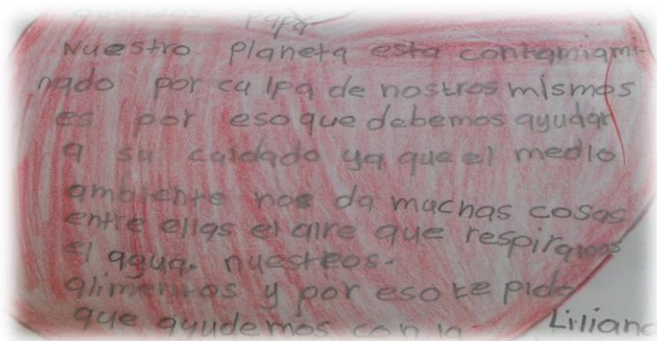 queridos papá
Nuestro planeta esta contamiami-
nado por culpa de nostros mismos
es por eso que debemos ayudar
a su caidado ya que el medio
ambiente nos da muchas cosas
entre ellas el aire que respiramos
el agua. nuestros.
alimentos y por eso te pido
que ayudemos con la Liliana